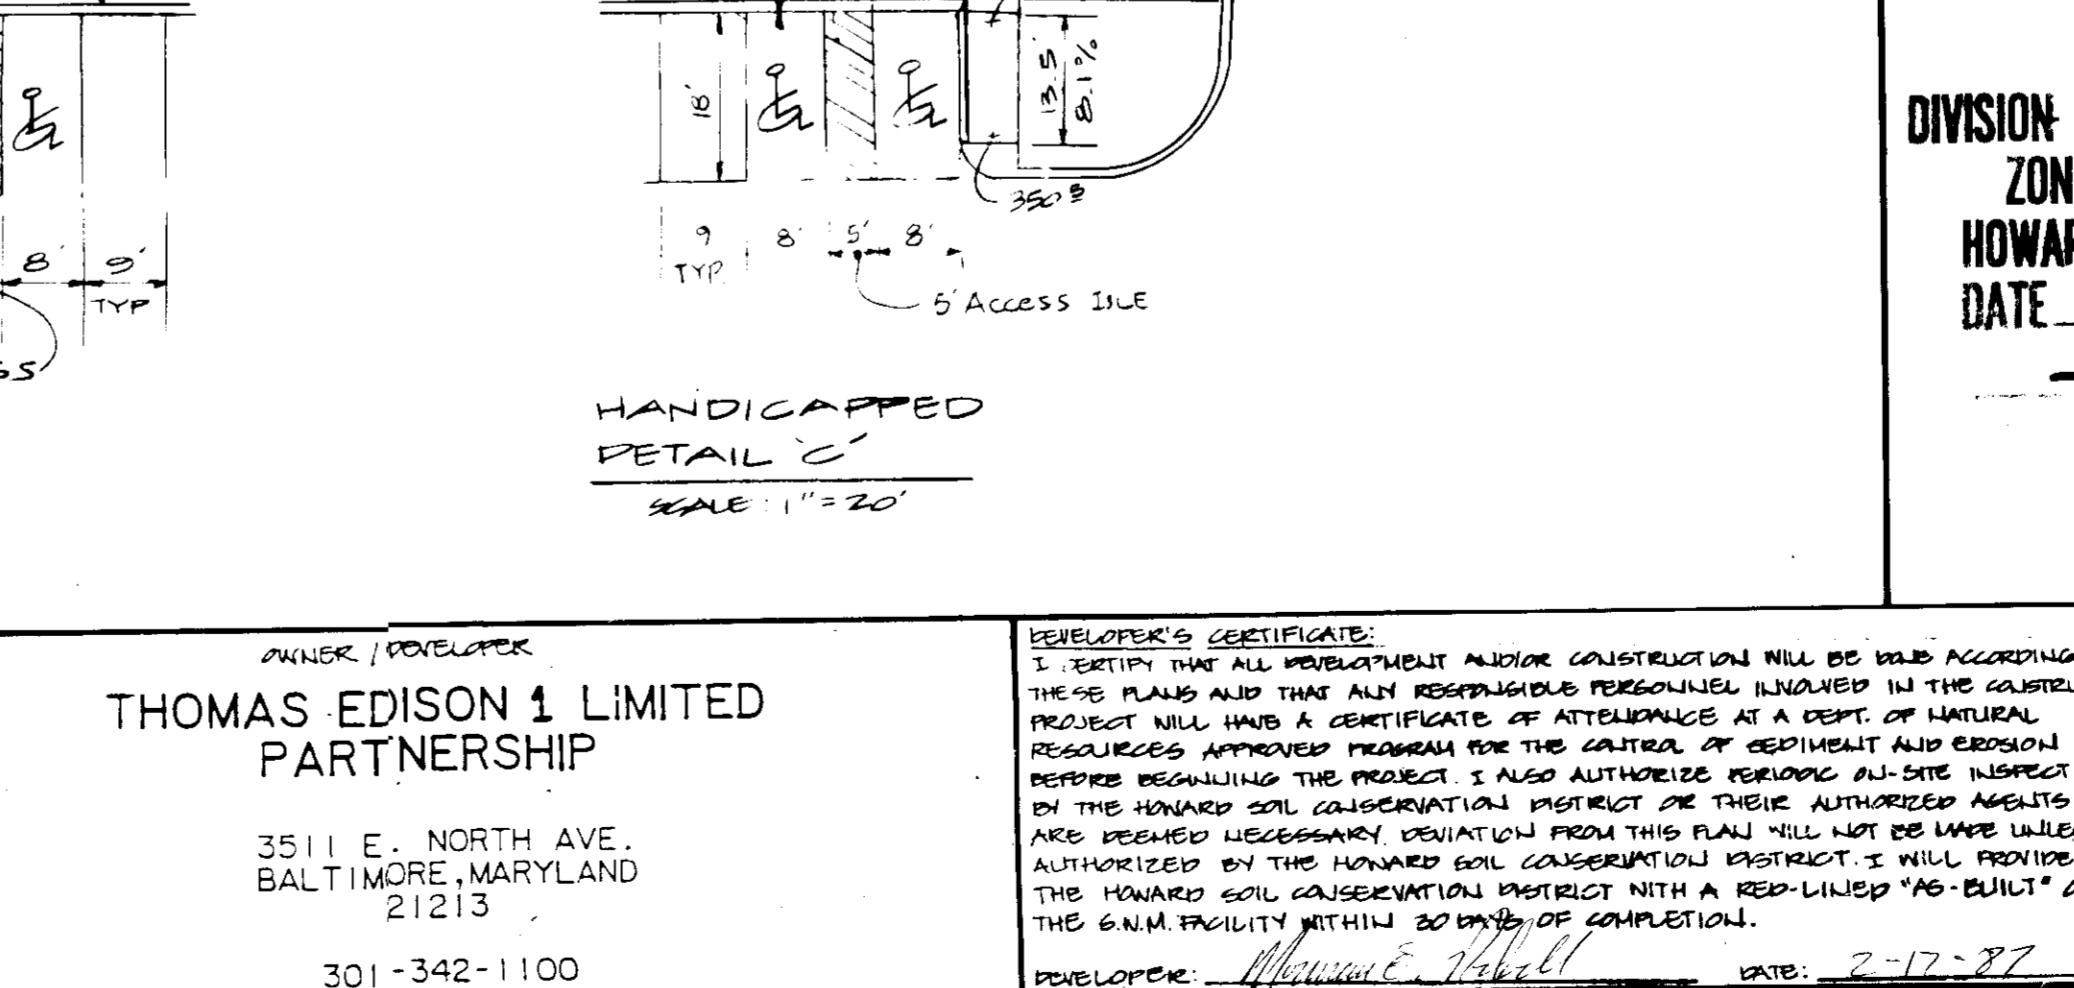 18'
13.5'
8.1%
350
8' 9'
TYP
9 8' 5' 8'
TYP.
5' Access ISLE
HANDICAPPED
DETAIL 'C'
SCALE: 1"=20'
DIVISION
ZON
HOWAR
DATE
OWNER / DEVELOPER
THOMAS EDISON 1 LIMITED
PARTNERSHIP
3511 E. NORTH AVE.
BALTIMORE, MARYLAND
21213
301-342-1100
DEVELOPER'S CERTIFICATE:
I CERTIFY THAT ALL DEVELOPMENT AND/OR CONSTRUCTION WILL BE DONE ACCORDING
THESE PLANS AND THAT ANY RESPONSIBLE PERSONNEL INVOLVED IN THE CONSTRU
PROJECT WILL HAVE A CERTIFICATE OF ATTENDANCE AT A DEPT. OF NATURAL
RESOURCES APPROVED PROGRAM FOR THE CONTROL OF SEDIMENT AND EROSION
BEFORE BEGINNING THE PROJECT. I ALSO AUTHORIZE PERIODIC ON-SITE INSPECT
BY THE HOWARD SOIL CONSERVATION DISTRICT OR THEIR AUTHORIZED AGENTS
ARE DEEMED NECESSARY. DEVIATION FROM THIS PLAN WILL NOT BE MADE UNLE
AUTHORIZED BY THE HOWARD SOIL CONSERVATION DISTRICT. I WILL PROVIDE
THE HOWARD SOIL CONSERVATION DISTRICT WITH A RED-LINED "AS-BUILT"
THE S.W.M. FACILITY WITHIN 30 DAYS OF COMPLETION.
DEVELOPER: DATE: 2-17-87